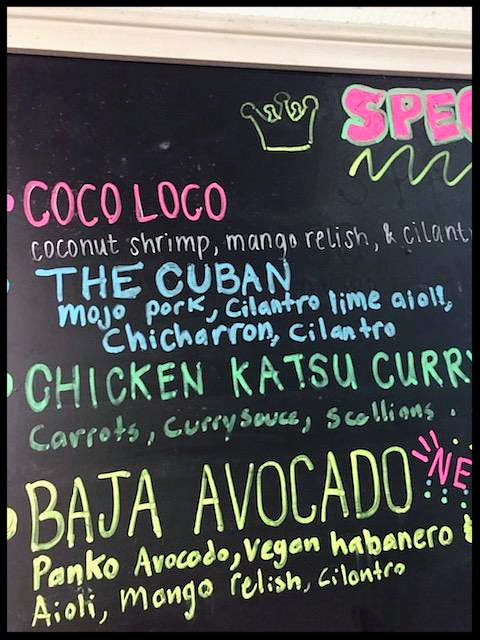 SPEC
COCO LOCO
coconut shrimp, mango relish, & cilant
THE CUBAN
mojo pork, Cilantro lime aioli,
Chicharron, cilantro
CHICKEN KATSU CURR
Carrots, curry sauce, scallions.
BAJA AVOCADO
NE
Panko Avocado, Vegan habanero
Aioli, Mango relish, cilantro